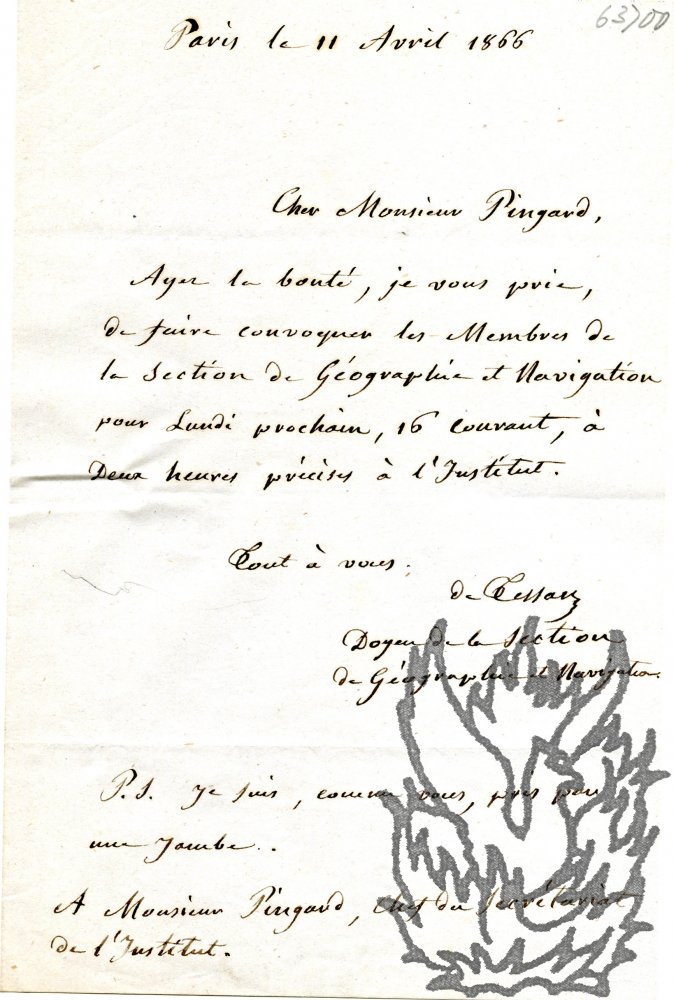 63700
Paris le 11 Avril 1866
Cher Monsieur Pingard,
Ayez la bonté, je vous prie,
de faire convoquer les Membres de
la Section de Géographie et Navigation
pour Lundi prochain, 16 courant, à
Deux heures précises à l'Institut.
Tout à vous.
de Tessan
Doyen de la Section
de Géographie et Navigation.
P.S. Je suis, comme vous, pris par
une Jambe..
A Monsieur Pingard, Chef du Secrétariat
de l'Institut.